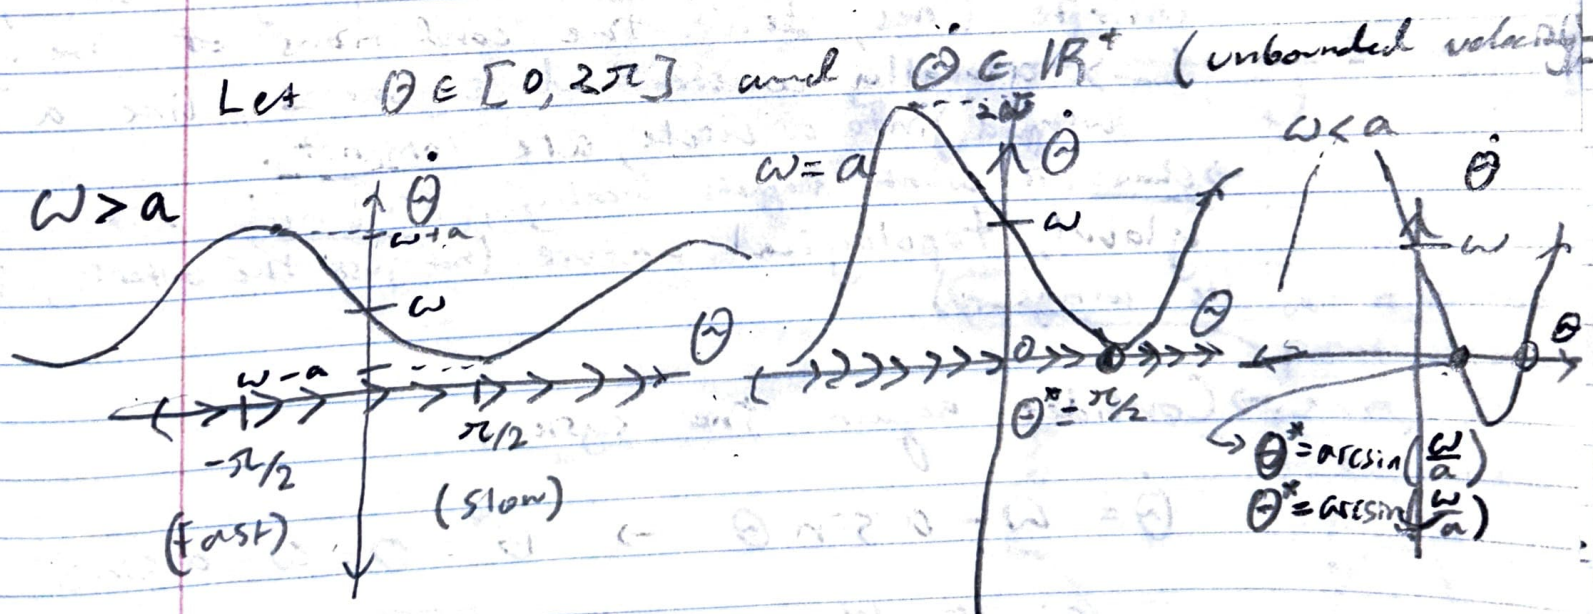 Let Θ ∈ [0, 2π] and Θ̇ ∈ ℝ⁺ (unbounded velocity)
ω > a
Θ̇
ω+a
ω
Θ
ω-a
-π/2
π/2
(fast)
(slow)
ω = a
2ω
Θ̇
ω
Θ
0
Θ* = π/2
ω < a
Θ̇
ω
Θ
Θ* = arcsin(ω/a)
Θ* = arcsin(ω/a)